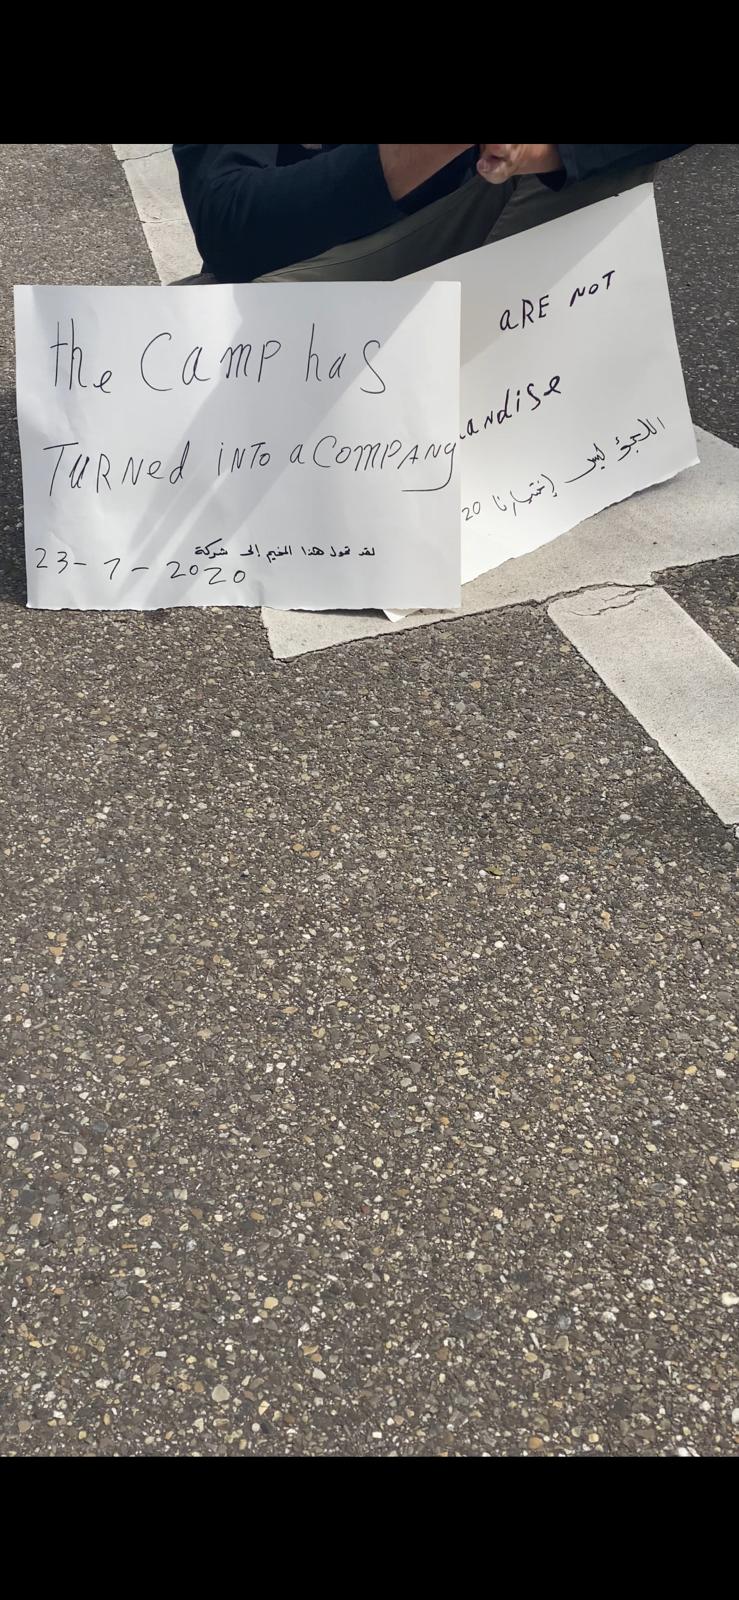 the Camp has
TURNed iNTo a COMPANy
لقد تحول هذا المخيم إلى شركة
23-7-2020
aRE NOT
andise
اللجوء ليس إختيارنا
20